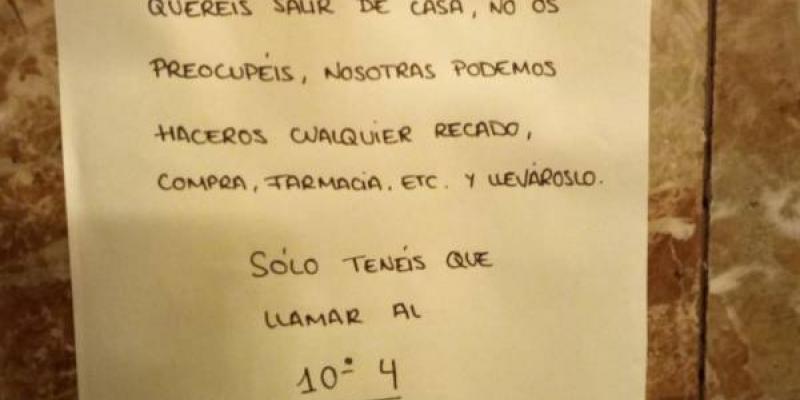 QUERÉIS SALIR DE CASA, NO OS
PREOCUPÉIS, NOSOTRAS PODEMOS
HACEROS CUALQUIER RECADO,
COMPRA, FARMACIA, ETC. Y LLEVÁROSLO.
SÓLO TENÉIS QUE
LLAMAR AL
10º 4